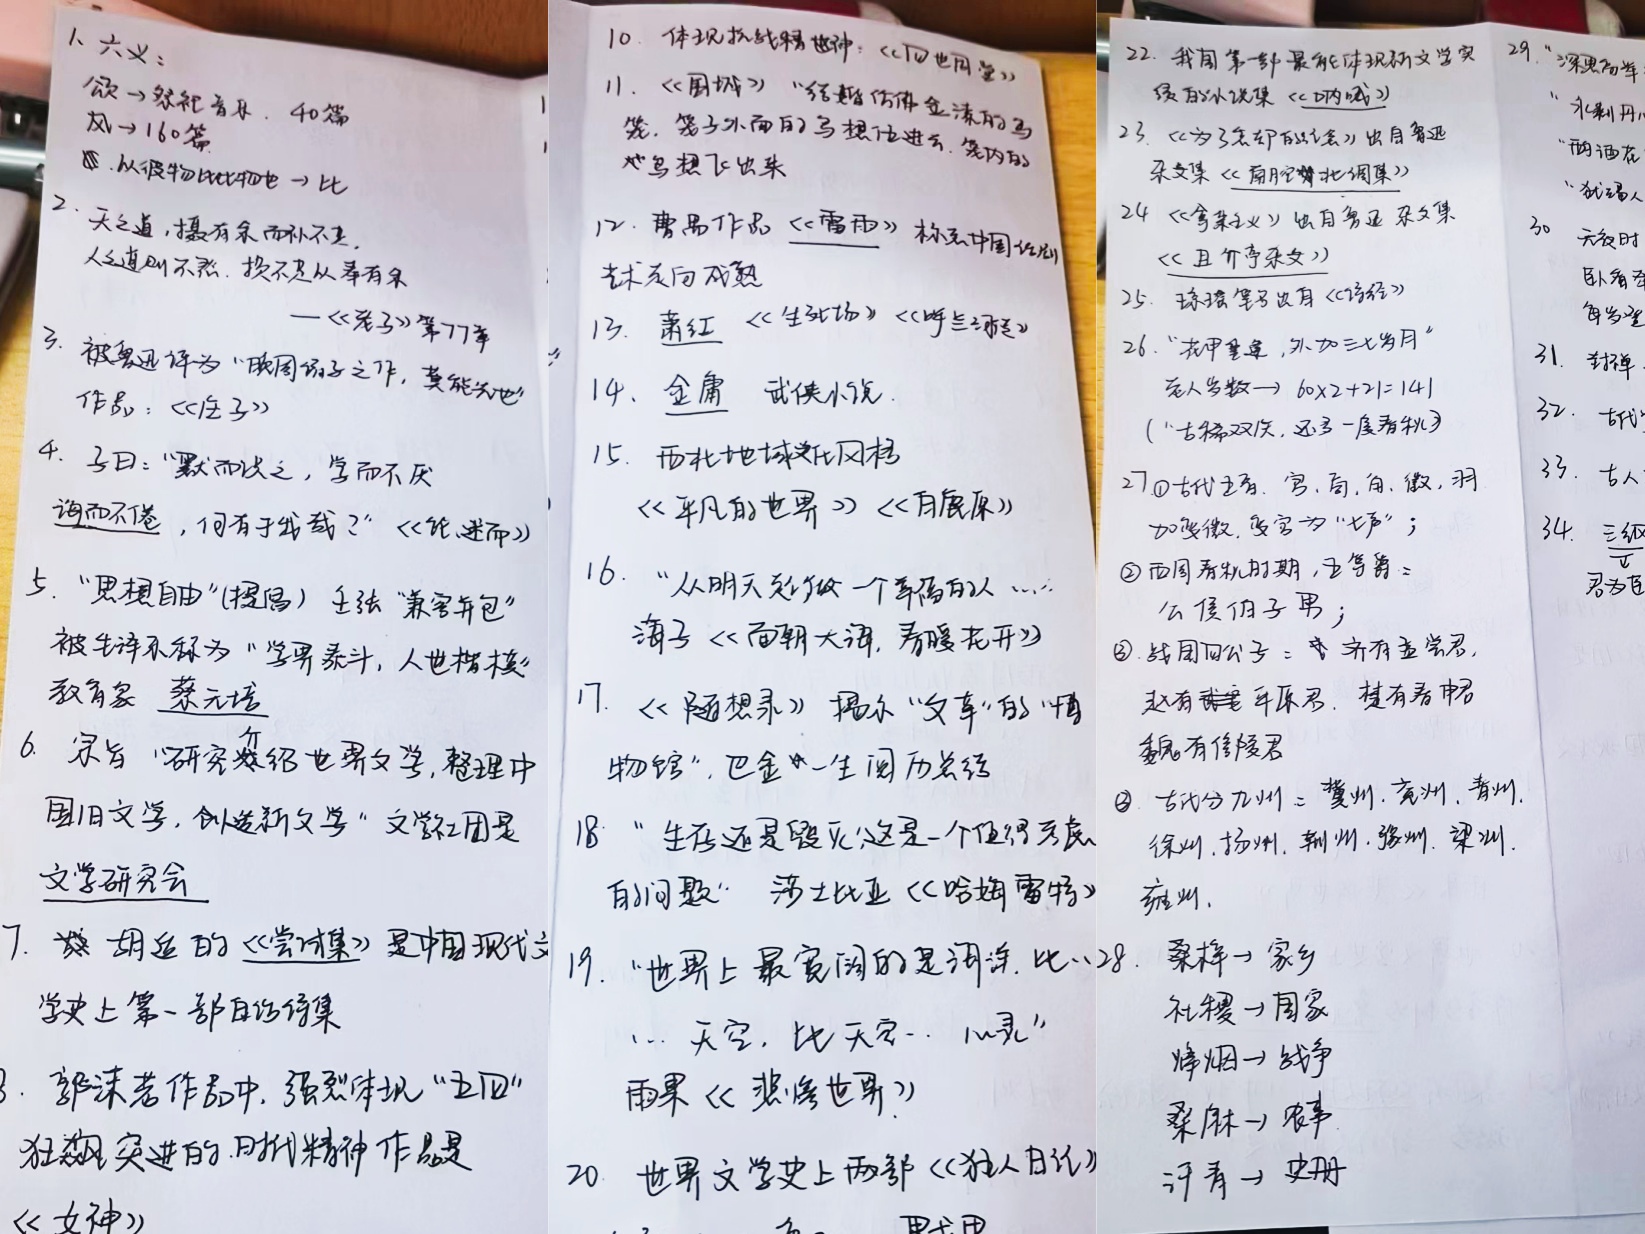 1、六义：
颂→祭祀音乐．40篇
风→160篇
以彼物比此物也→比
2、天之道，损有余而补不足，
人之道则不然．损不足以奉有余
—《老子》第77章
3、被鲁迅评为"晚周诸子之作，莫能先也"
作品：《庄子》
4、子曰："默而识之，学而不厌
诲而不倦，何有于我哉？"《论.述而》
5、"思想自由"(提倡) 主张"兼容并包"
被毛泽东称为"学界泰斗，人世楷模"
教育家 蔡元培
6、宗旨"研究介绍世界文学，整理中
国旧文学，创造新文学"文学社团是
文学研究会
7、胡适的《尝试集》是中国现代文
学史上第一部白话诗集
郭沫若作品中，强烈体现"五四"
狂飙突进的时代精神作品是
《女神》
10、体现抗战精神：《四世同堂》
11、《围城》"结婚仿佛金漆的鸟
笼，笼子外面的鸟想住进去，笼内的
鸟想飞出来
12、曹禺作品《雷雨》标志中国话剧
艺术走向成熟
13、萧红《生死场》《呼兰河传》
14、金庸 武侠小说．
15、西北地域文化风格
《平凡的世界》《白鹿原》
16、"从明天起做一个幸福的人……
海子《面朝大海，春暖花开》
17、《随想录》揭示"文革"的"博
物馆"，巴金一生阅历总结
18 "生存还是毁灭，这是一个值得考虑
的问题" 莎士比亚《哈姆雷特》
19、"世界上最宽阔的是海洋．比…
…天空，比天空…心灵"
雨果《悲惨世界》
20、世界文学史上两部《狂人日记》
22、我国第一部最能体现新文学实
绩的小说集《呐喊》
23、《为了忘却的纪念》出自鲁迅
杂文集《南腔北调集》
24 《拿来主义》出自鲁迅杂文集
《且介亭杂文》
25、琼瑶笔名出自《诗经》
26、"花甲重逢，外加三七岁月"
老人岁数→60×2+21=141
("古稀双庆，还多一度春秋")
27①古代五音．宫，商，角，徵，羽
加变徵，变宫为"七声"；
②西周春秋时期，五等爵：
公侯伯子男；
③．战国四公子：齐有孟尝君，
赵有平原君．楚有春申君
魏有信陵君
③ 古代分九州：冀州．兖州．青州．
徐州．扬州．荆州．豫州．梁州．
雍州．
28. 桑梓→家乡
社稷→国家
烽烟→战争
桑麻→农事
汗青→史册
29、"深思
"
"
"犹
30
卧看
每
31、封禅
32、古代
33、古人
34、三纲
君为臣